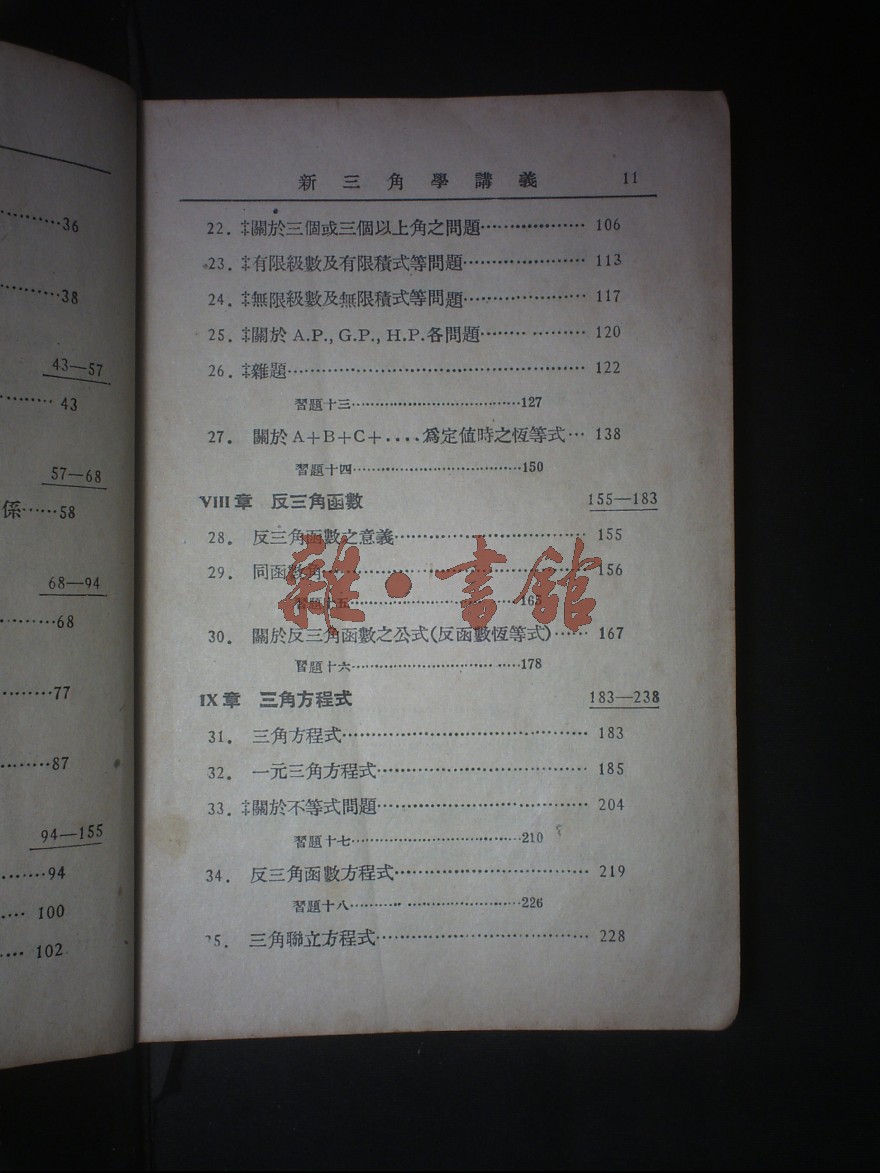 ·········36
·········38
43—57
········ 43
57—68
係······58
68—94
·········68
·········77
·········87
94—155
········94
···· 100
···· 102
新三角學講義 11
22. ‡關於三個或三個以上角之問題·················· 106
23. ‡有限級數及有限積式等問題····················· 113
24. ‡無限級數及無限積式等問題····················· 117
25. ‡關於 A.P., G.P., H.P. 各問題········ ········· 120
26. ‡雜題·················································· 122
習題十三·································127
27. 關於 A+B+C+....爲定值時之恆等式··· 138
習題十四·································150
VIII 章 反三角函數 155—183
28. 反三角函數之意義································· 155
29. 同函數角············································· 156
習題十五·································165
30. 關於反三角函數之公式(反函數恆等式)······ 167
習題十六·································178
IX 章 三角方程式 183—238
31. 三角方程式·········································· 183
32. 一元三角方程式···································· 185
33. ‡關於不等式問題···································· 204
習題十七·································210
34. 反三角函數方程式································· 219
習題十八·································226
35. 三角聯立方程式···································· 228
雜·書館